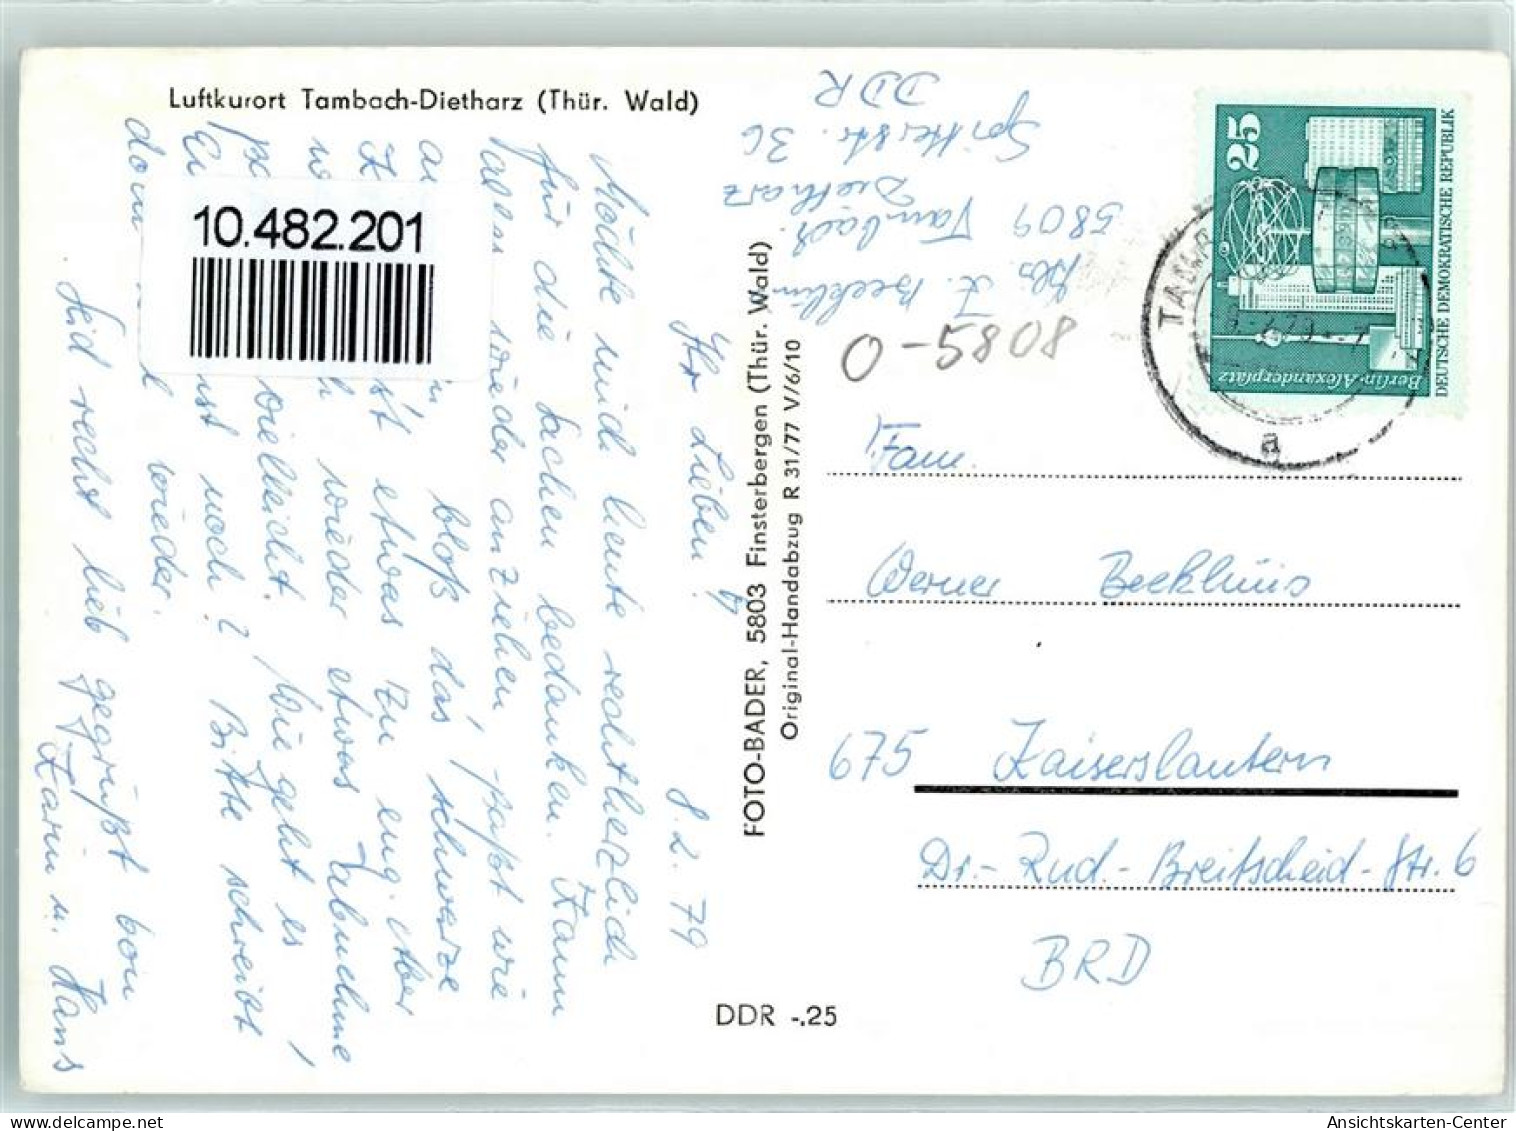 Luftkurort Tambach-Dietharz (Thür. Wald)
10.482.201
8.2.79
Ihr Lieben!
Möchte mich heute recht herzlich
für die Sachen bedanken. Kann
alles wieder anziehen, paßt wie
bloß das schwarze
ist etwas zu eng. Aber
wieder etwas Zunehme
vielleicht. Wie geht es
noch? Bitte schreibt
wieder.
Seid recht lieb gegrüßt von
Karin u. Hans
FOTO-BADER, 5803 Finsterbergen (Thür. Wald)
Original-Handabzug R 31/77 V/6/10
DDR -.25
Abs. K. Beeklüis
5809 Tambach
Dietharz
Spitterstr. 36
DDR
0-5808
25
Berlin-Alexanderplatz
DEUTSCHE DEMOKRATISCHE REPUBLIK
a
Fam.
Werner Beeklüis
675 Kaiserslautern
Dr.-Rud.-Breitscheid-Str. 6
BRD
www.ansichtskarten-center.de
Ansichtskarten-Center